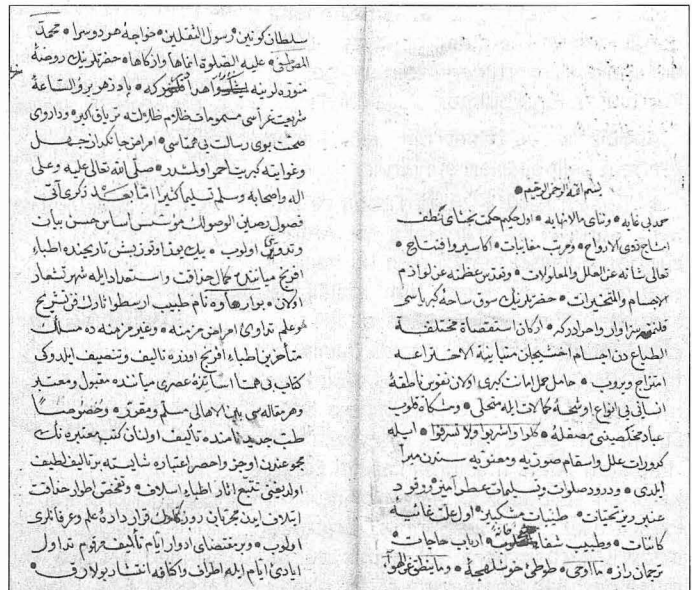 بسم الله الرحمن الرحيم
حمد بى غايه وثناى لا نهايه اول حكيم حكمت بخشاى لطف
امتاج ذوى الارواح وحرث مفابنات اكاسير وافتتاج
تعالى شانه عن العلل والمعلولات وتقدس عظمته عن لوازم
الاجسام والمتحيزات حضرتلرينك سوق ساحهٔ كبرياسى
سزاوار واحرادركه اركان استقصات مختلفة
الطباع دن اجسام متباينة الاختراعه
امتزاج ويروب حامل حمل امانت كبرى اولان نفوس ناطقهٔ
انسانى بى انواع كمالات ايله متحلى ومشكاة قلوب
عباد كلوا واشربوا ولا تسرفوا ايله
كدورات علل واسقام صوريه ومعنويه سندن مبرا
ايلدى ودرود صلوات وتسليمات عطر آميز
عنبر ريز تحيات طيبات مشكبيز اول علت غائيهٔ
كائنات وطبيب ارباب حاجات
ترجمان راز ما اوحى طوطئ خوش لهجهٔ وما ينطق عن الهوى
سلطان كونين رسول الثقلين خواجهٔ هر دوسرا محمد
المصطفى عليه الصلوة اتماها وازكاها حضرتلرينك روضهٔ
منوره لرينه اهدا كه بادزهر بروء الساعهٔ
شريعت غراسى مسمومات ظلام ضلالته ترياق اكبر وداروى
صحت بوى رسالت بى همتاسى امراض جانكداز جهل
وغوايته كبريت احمر اولمشدر صلى الله تعالى عليه وعلى
اله واصحابه وسلم تسليما كثيرا اما بعد ذكرى آتى
فصول رصين الوصول مؤسس اساس حسن بيان
وتدوين اولوب بيك يوز اوتوز بش تاريخنده اطباء
افرنج مياننده كمال حذاقت واستعداد ايله شهرتشعار
اولان نام طبيب ارسطو آثارك فن تشريح
وعلم تداوئ امراض مزمنه وغير مزمنه ده مسلك
متأخرين اطباء افرنج اوزره تاليف وتصنيف ايلدوكى
كتاب بى همتا اساتذهٔ عصرى مياننده مقبول ومعتبر
وهر مقاله سى بين الاهالى مسلم ومقرر وخصوصا
طب جديد نامنده تأليف اولنان كتب معتبره نك
مجموعندن اوجز واحصر اعتباره شايسته بر تاليف لطيف
اولديغنى تتبع آثار اطباء اسلاف وتفحص اطوار حذاقت
ائتلاف ايدن مجربان قرار دادهٔ علم وعرفانلرى
اولوب وبر مقتضاى ادوار ايام تأليف مرقوم تداول
ايادئ ايام ايله اطراف واكنافه انتشار بولارق